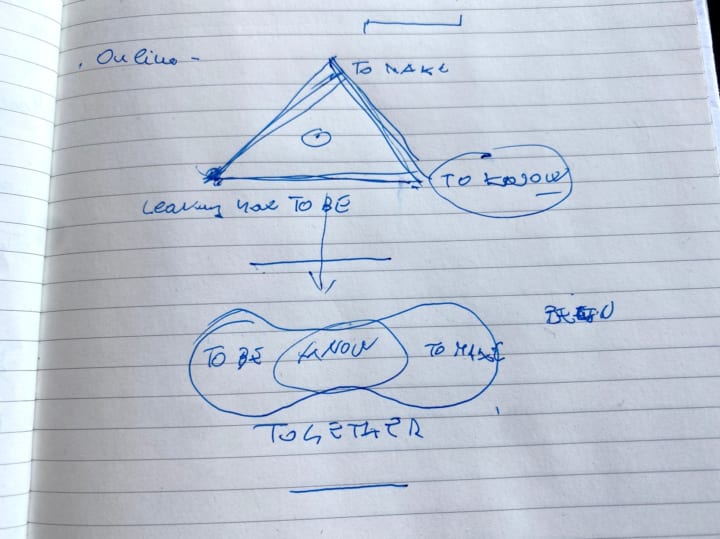 . Online -
TO MAKE
TO KNOW
Learning how TO BE
TO BE
KNOW
TO MAKE
TOGETHER